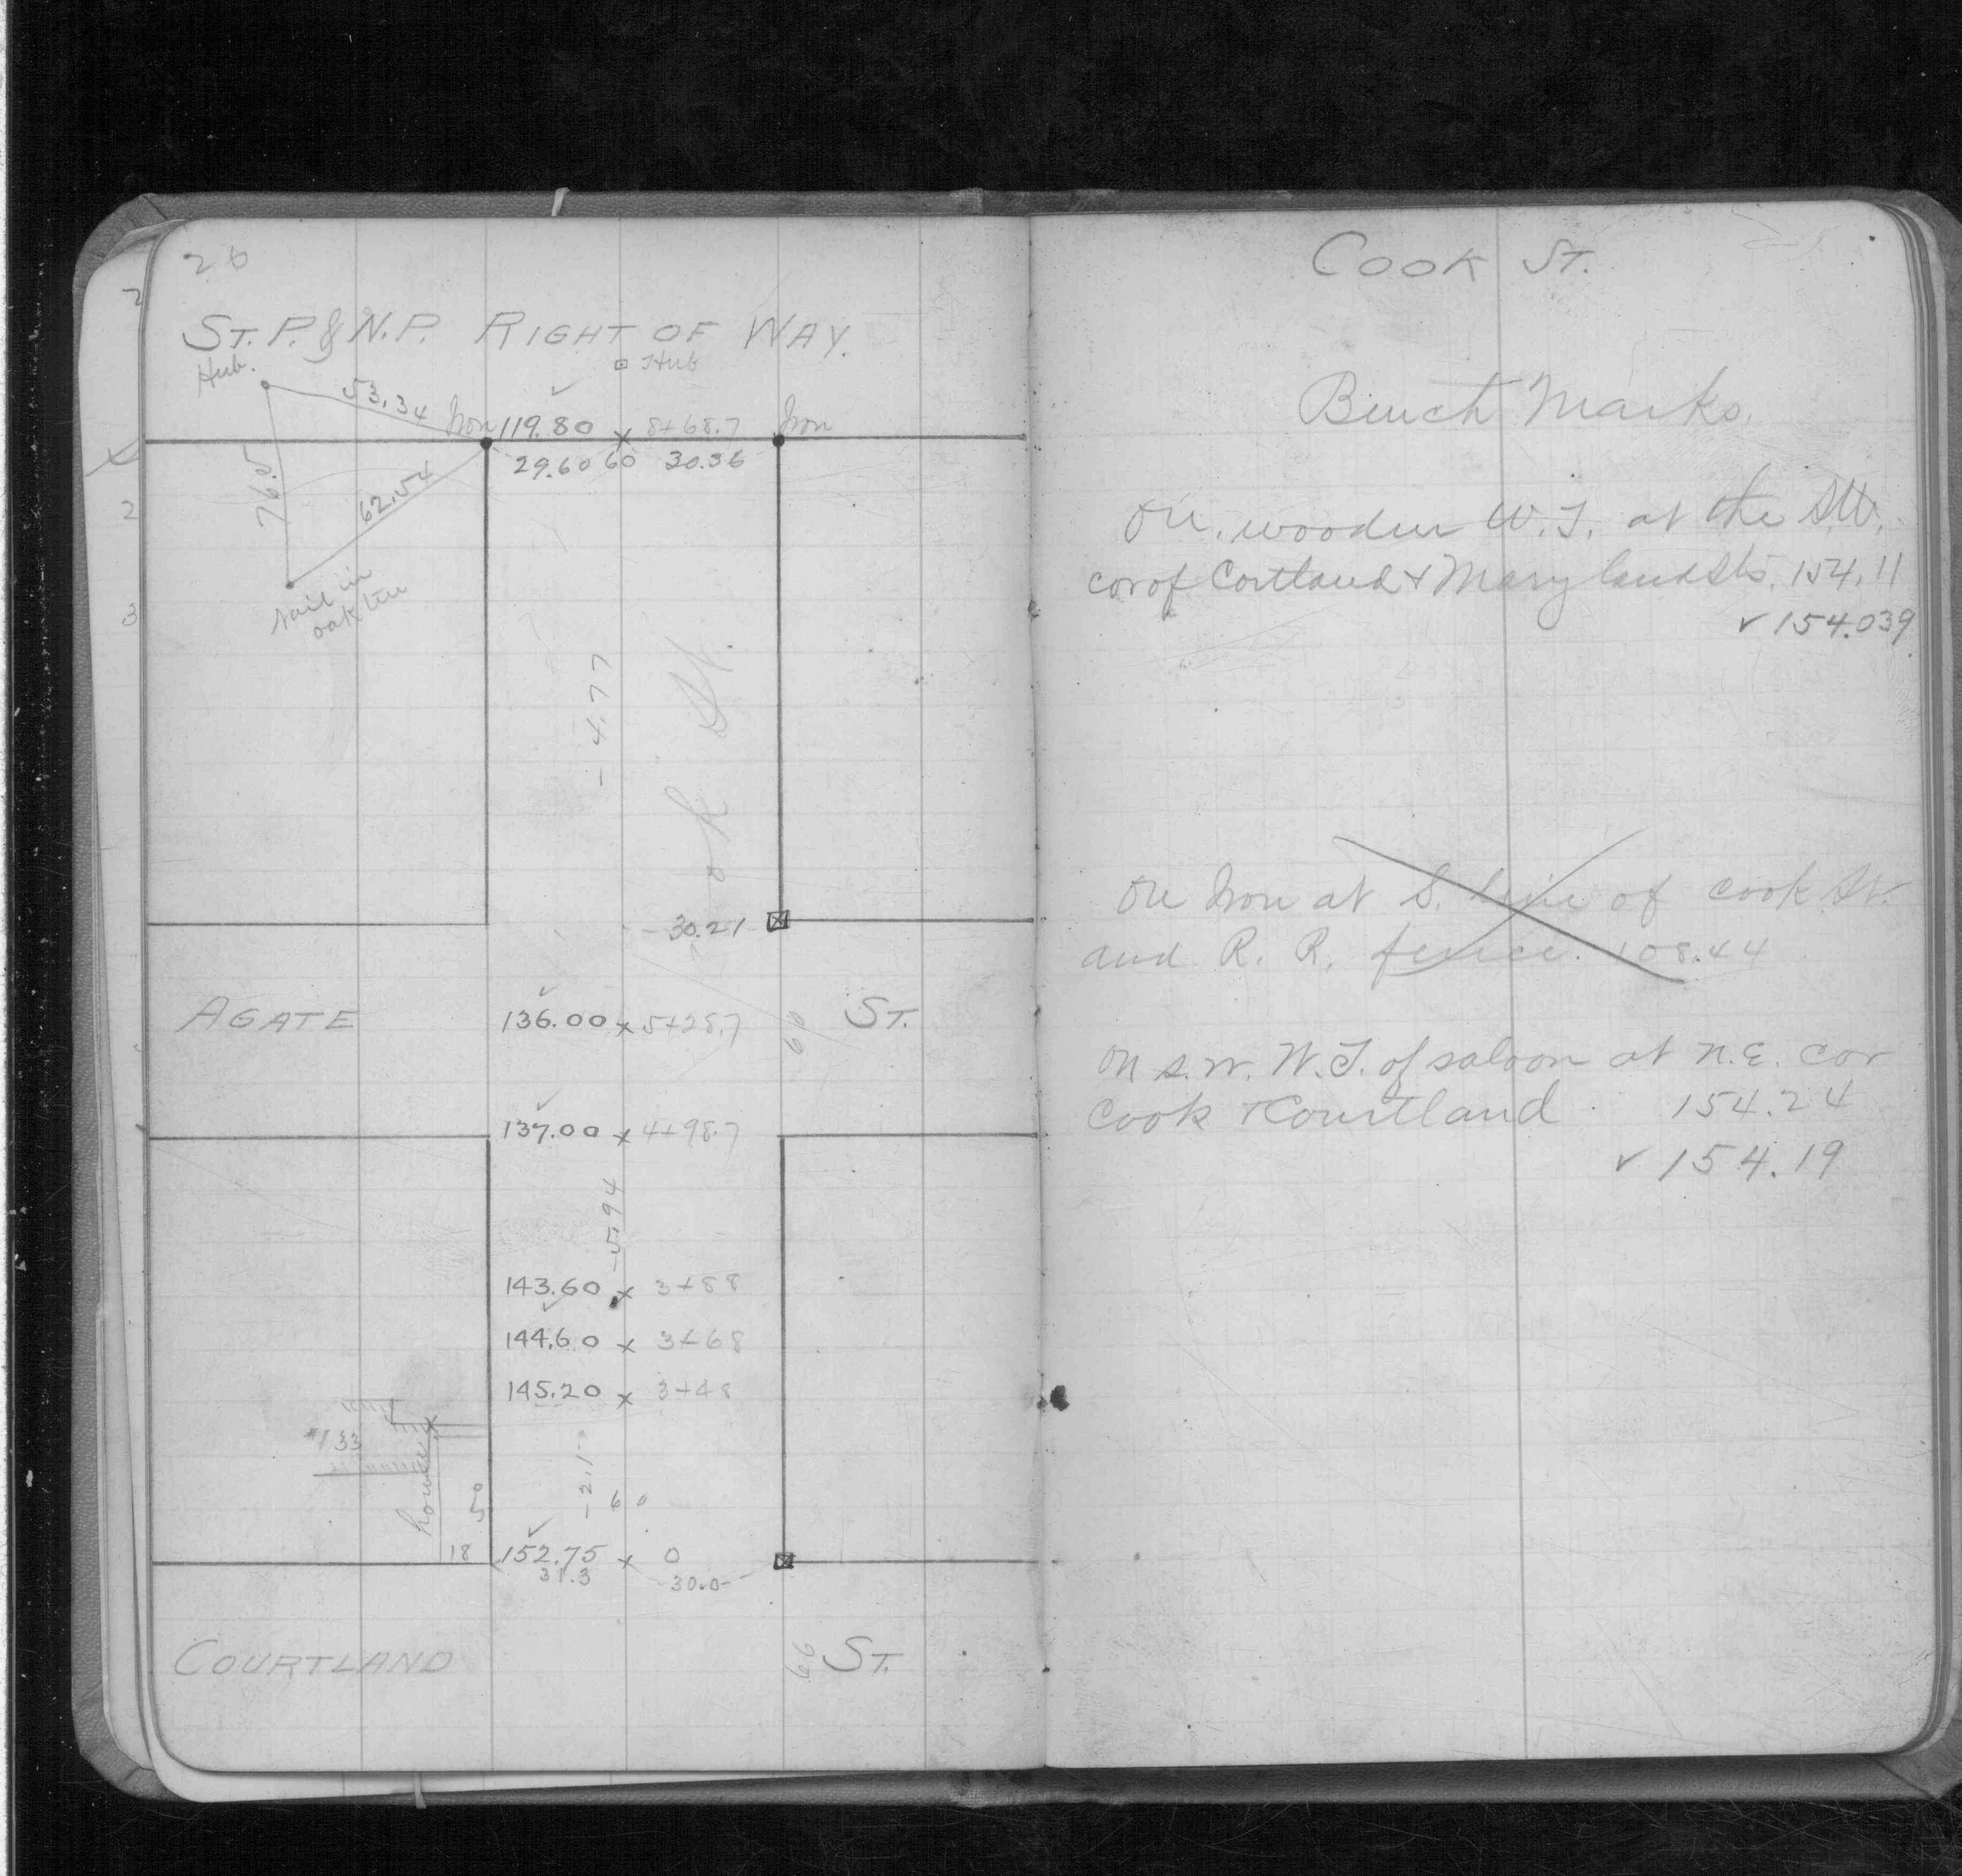 26
ST. P. & N.P. RIGHT OF WAY.
Hub.
Hub
53.34
Iron
119.80 x 8+68.7
Iron
29.60 60 30.36
76.5
62.54
nail in
oak tree
- 4.77
Cook St.
30.21
AGATE
136.00 x 5+28.7
60
ST.
137.00 x 4+98.7
-5.94
143.60 x 3+88
144.60 x 3+68
145.20 x 3+48
#133
house
-2.1
60
18
152.75 x 0
31.3
30.0
COURTLAND
66
ST.
COOK ST.
Bench Marks.
On wooden W.T. at the S.W.
cor of Cortland & Maryland Sts. 154.11
✓ 154.039
On Iron at S. line of Cook St.
and R. R. fence. 108.44
On S.W. W.T. of saloon at N.E. cor
Cook & Courtland 154.24
✓ 154.19